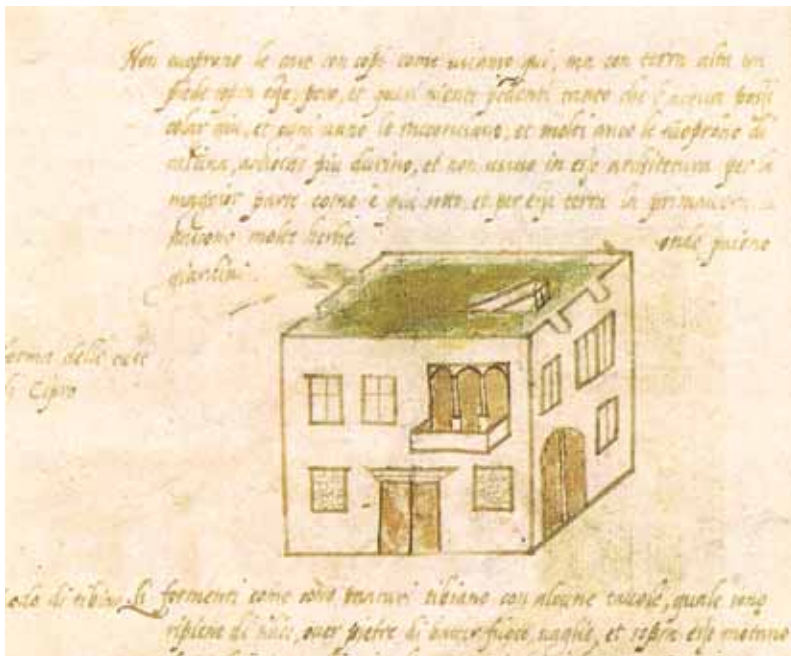 Non cuoprano le case con coppi come usiamo qui, ma con terra alta un
piede sopra esse, poco, et quasi niente pendenti tanto che l'acqua possi
colar giu, et ogni anno le racconciano, et molti anco le cuoprano di
più durino, et non usano in esse architettura per la
maggior parte come è qui sotto, et per essa terra la primavera
nascono molte herbe onde paiono
giardini.
forma delle case
di Cipro
modo di tibiar li formenti come sono tibiano con alcune tavole, quale sono
ripiene di pietre di fuoco, et sopra esse